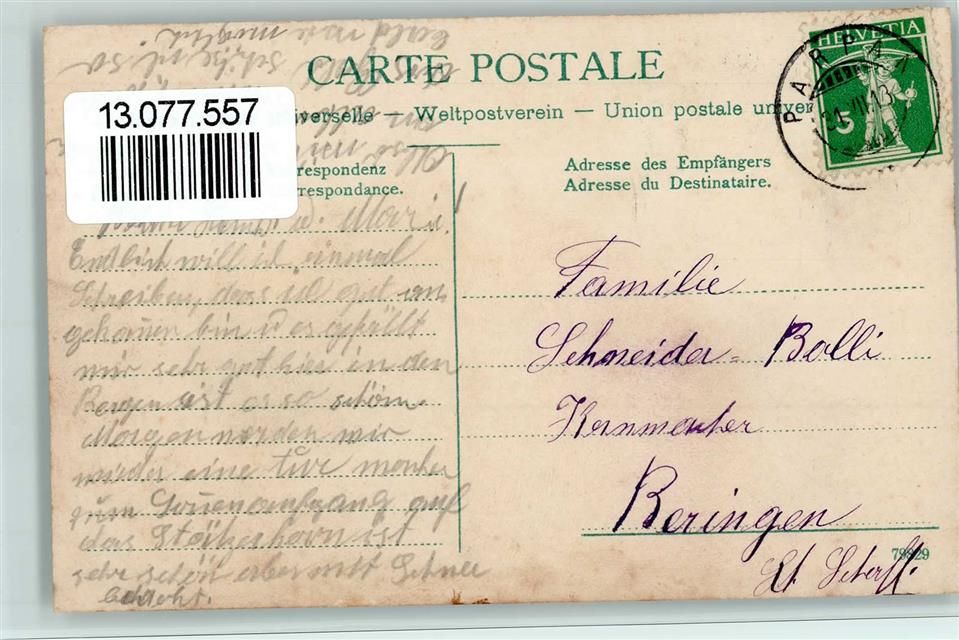 CARTE POSTALE
13.077.557
iverselle — Weltpostverein — Union postale univer
HELVETIA
5
PARPAN
31.VII.13
rrespondenz
rrespondance.
Adresse des Empfängers
Adresse du Destinataire.
Endlich will ich einmal
Schreiben, dass ich gut an
gekommen bin u es gefällt
mir sehr gut hier in den
Bergen ist es so schön.
Morgen werden wir
wieder eine Ture machen
zum Sonenaufgang auf
das Stätzerhorn ist
sehr schön aber mit Schnee
bedeckt.
bald wie möglich
Familie
Schneider-Bolli
Kernmacher
Beringen
Kt. Schaffh.
79829